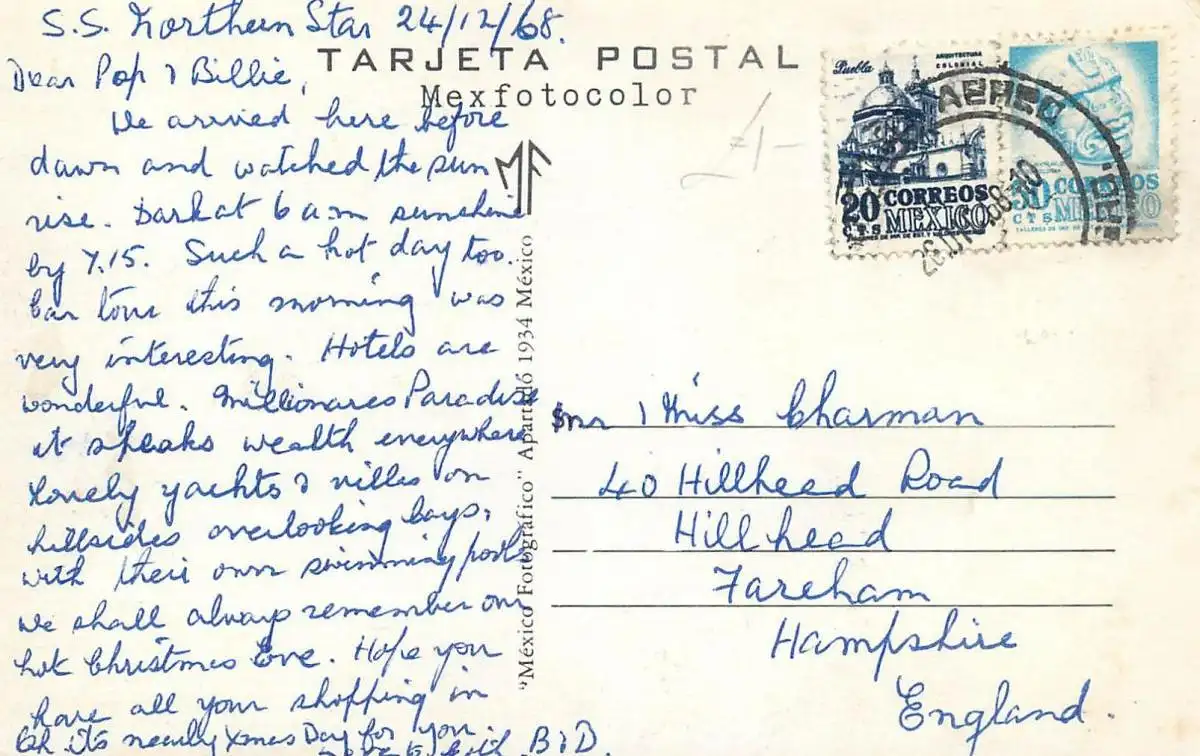 S.S. Northern Star 24/12/68.
TARJETA POSTAL
Mexfotocolor
Dear Pop & Billie,
We arrived here before
dawn and watched the sun
rise. Dark at 6 am sunshine
by 7.15. Such a hot day too.
Car tour this morning was
very interesting. Hotels are
wonderful. Millionares Paradise
it speaks wealth everywhere
Lovely yachts & villas on
hillsides overlooking bays,
with their own swimming pools
We shall always remember our
hot Christmas Eve. Hope you
have all your shopping in
its nearly Xmas Day for you
B & D.
MF
"México Fotográfico" Apartado 1934 México
£1-
Puebla
ARQUITECTURA
COLONIAL
20 CORREOS
CTS MEXICO
30 CORREOS
CTS MEXICO
AEREO
Mr & Miss Charman
40 Hillhead Road
Hillhead
Fareham
Hampshire
England.